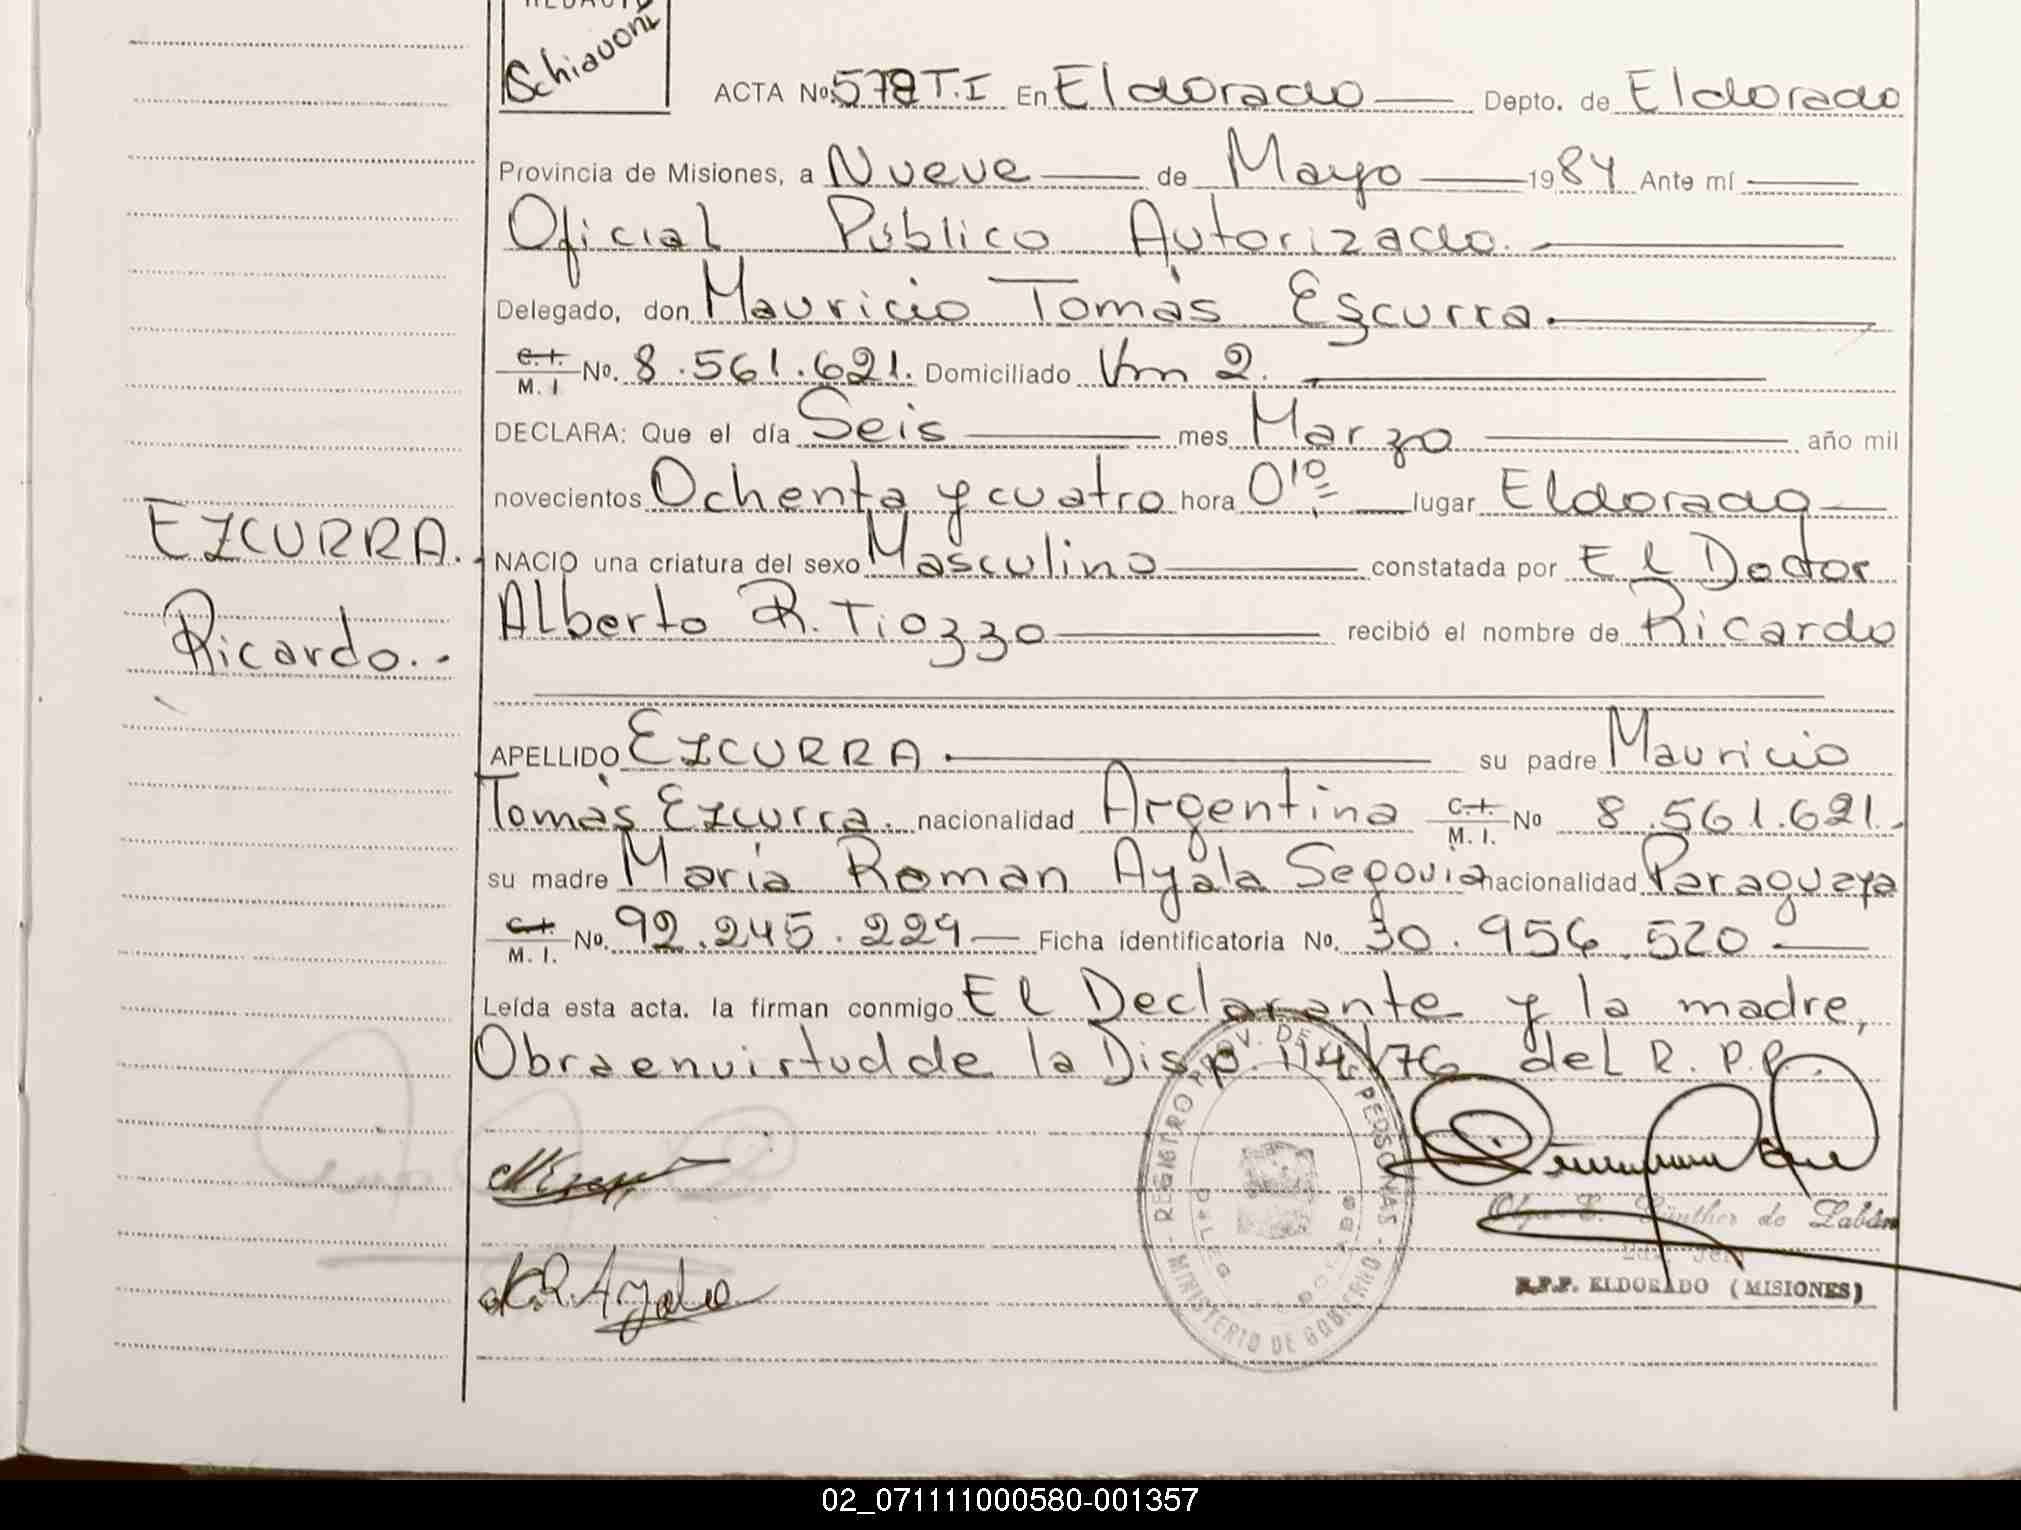 REDACTO
Schiavoni
ACTA No. 578 T.I En Eldorado Depto. de Eldorado
Provincia de Misiones, a Nueve de Mayo 1984 Ante mí
Oficial Público Autorizado.
Delegado, don Mauricio Tomás Ezcurra.
C.I. M. I. No. 8.561.621. Domiciliado Km 2.
DECLARA: Que el día Seis mes Marzo año mil
novecientos Ochenta y cuatro hora 01º lugar Eldorado
EZCURRA. NACIO una criatura del sexo Masculino constatada por El Doctor
Ricardo.. Alberto R. Tiozzo recibió el nombre de Ricardo
APELLIDO EZCURRA su padre Mauricio
Tomás Ezcurra. nacionalidad Argentina C.I. M. I. No 8.561.621.
su madre María Roman Ayala Segovia nacionalidad Paraguaya
C.I. M. I. No. 92.245.229 Ficha identificatoria No. 30.956.520
Leída esta acta. la firman conmigo El Declarante y la madre,
Obra en virtud de la Disp 114/76 del R.P.P.
REGISTRO PROV. DE PERSONAS - MINISTERIO DE GOBIERNO
Günther de Labán
R.P.P. ELDORADO (MISIONES)
02_071111000580-001357